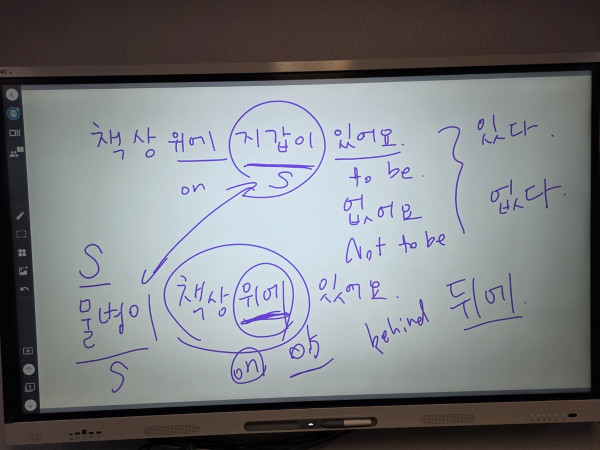 책상 위에 지갑이 있어요. 있다.
on S to be.
없어요 없다.
Not to be
S
물병이 책상 위에 있어요. behind 뒤에
S on